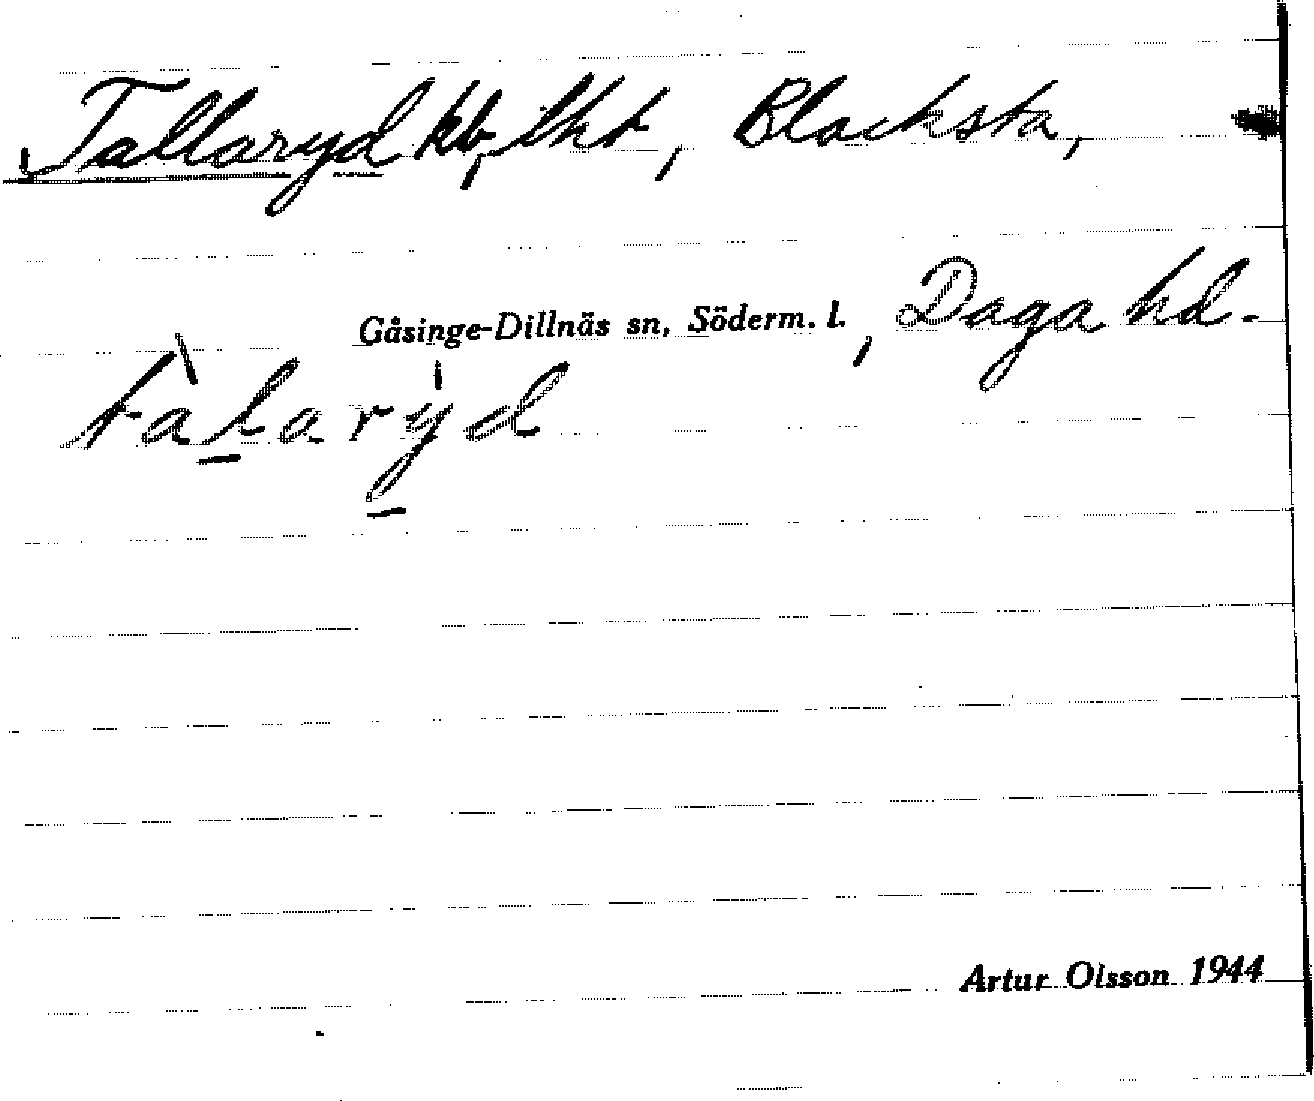 Tallaryd kb, lht, Blacksta,
Gåsinge-Dillnäs sn, Söderm. l., Daga hd.
tàlarýd
Artur Olsson 1944